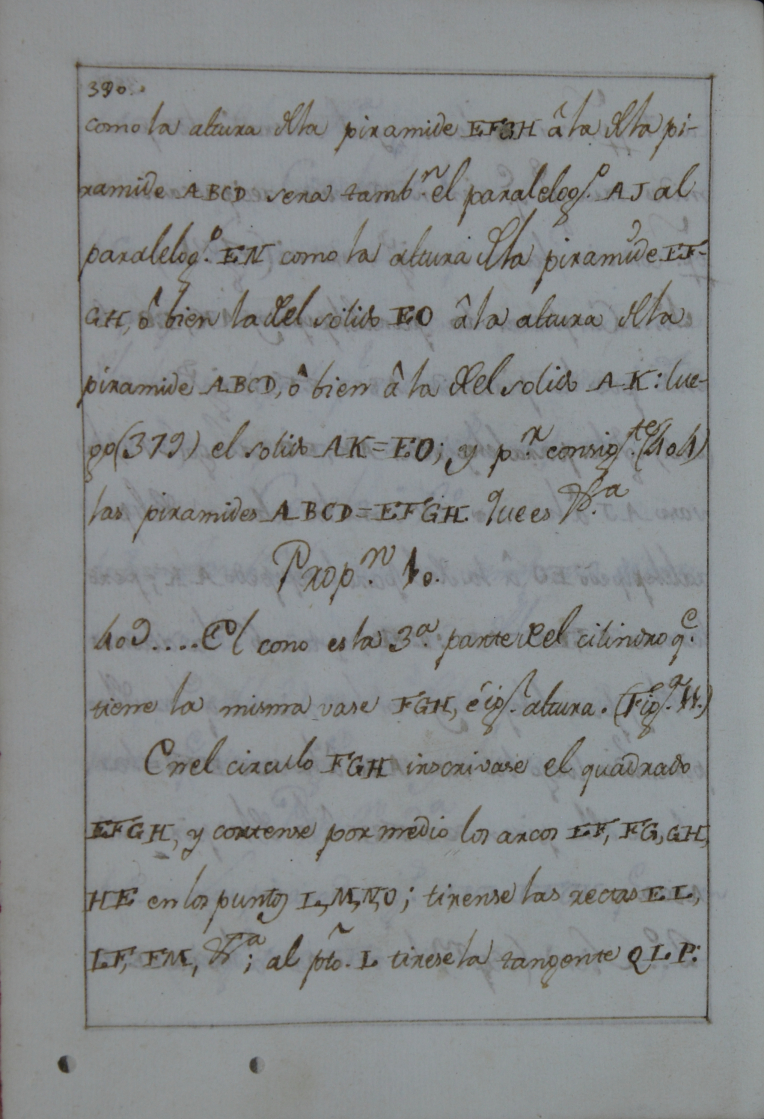 390.
como la altura dela piramide EFGH â la dela pi-
ramide ABCD sera tamb.n el paralelog.o AJ al
paralelog.o EN como la altura dela piramide EF-
GH, ô bien la del solido EO â la altura dela
piramide ABCD, ô bien â la del solido AK: lue-
go (379) el solido AK=EO; y p.r consig.te (404)
las piramides ABCD=EFGH. que es &.a
Prop.n 10.
409....El cono es la 3.a parte del cilindro q.e
tiene la misma vase FGH, é ig.l altura. (Fig.a 11.)
En el circulo FGH inscrivase el quadrado
EFGH, y cortense por medio los arcos EF, FG, GH,
HE en los puntos L, M, N, O; tirense las rectas EL,
LF, FM, &.a; al pto. L tirese la tangente QLP: